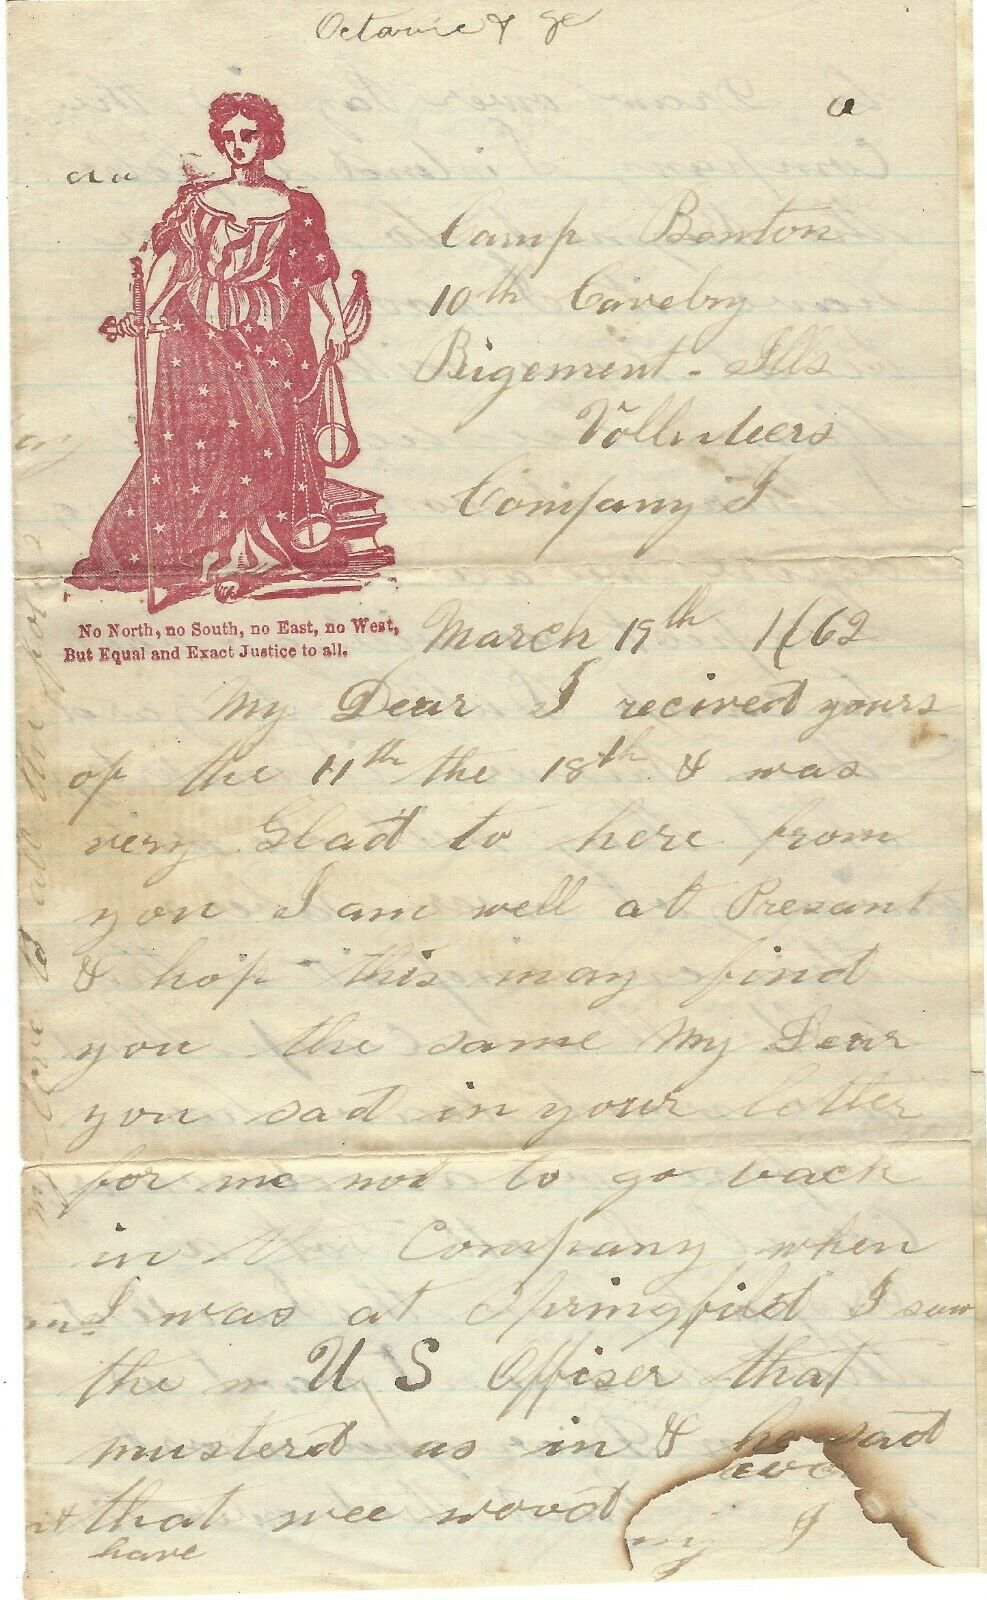 Octavie &
a
Camp Benton
10th Cavelry
Rigement - Ills
Vollenteers
Company I
No North, no South, no East, no West,
But Equal and Exact Justice to all.
March 19th 1862
My Dear I recived yours
of the 11th the 18th & was
very Glad to here from
you I am well at Presant
& hop this may find
you the same My Dear
you sad in your letter
for me not to go back
in Company when
I was at Springfild I saw
the U S Offiser that
musterd us in & he sad
that wee wood
have
I
love to all the folks